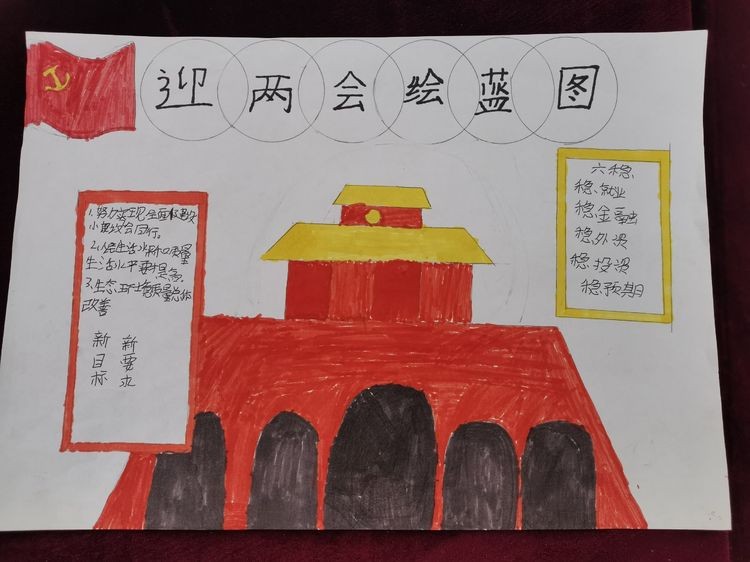 迎两会绘蓝图
六稳
稳就业
稳金融
稳外资
稳投资
稳预期
1.努力实现全面建设
小康社会
2.人民生活水平和质量
生活水平要提高
3.生态环境质量总体
改善
新目标
新要求